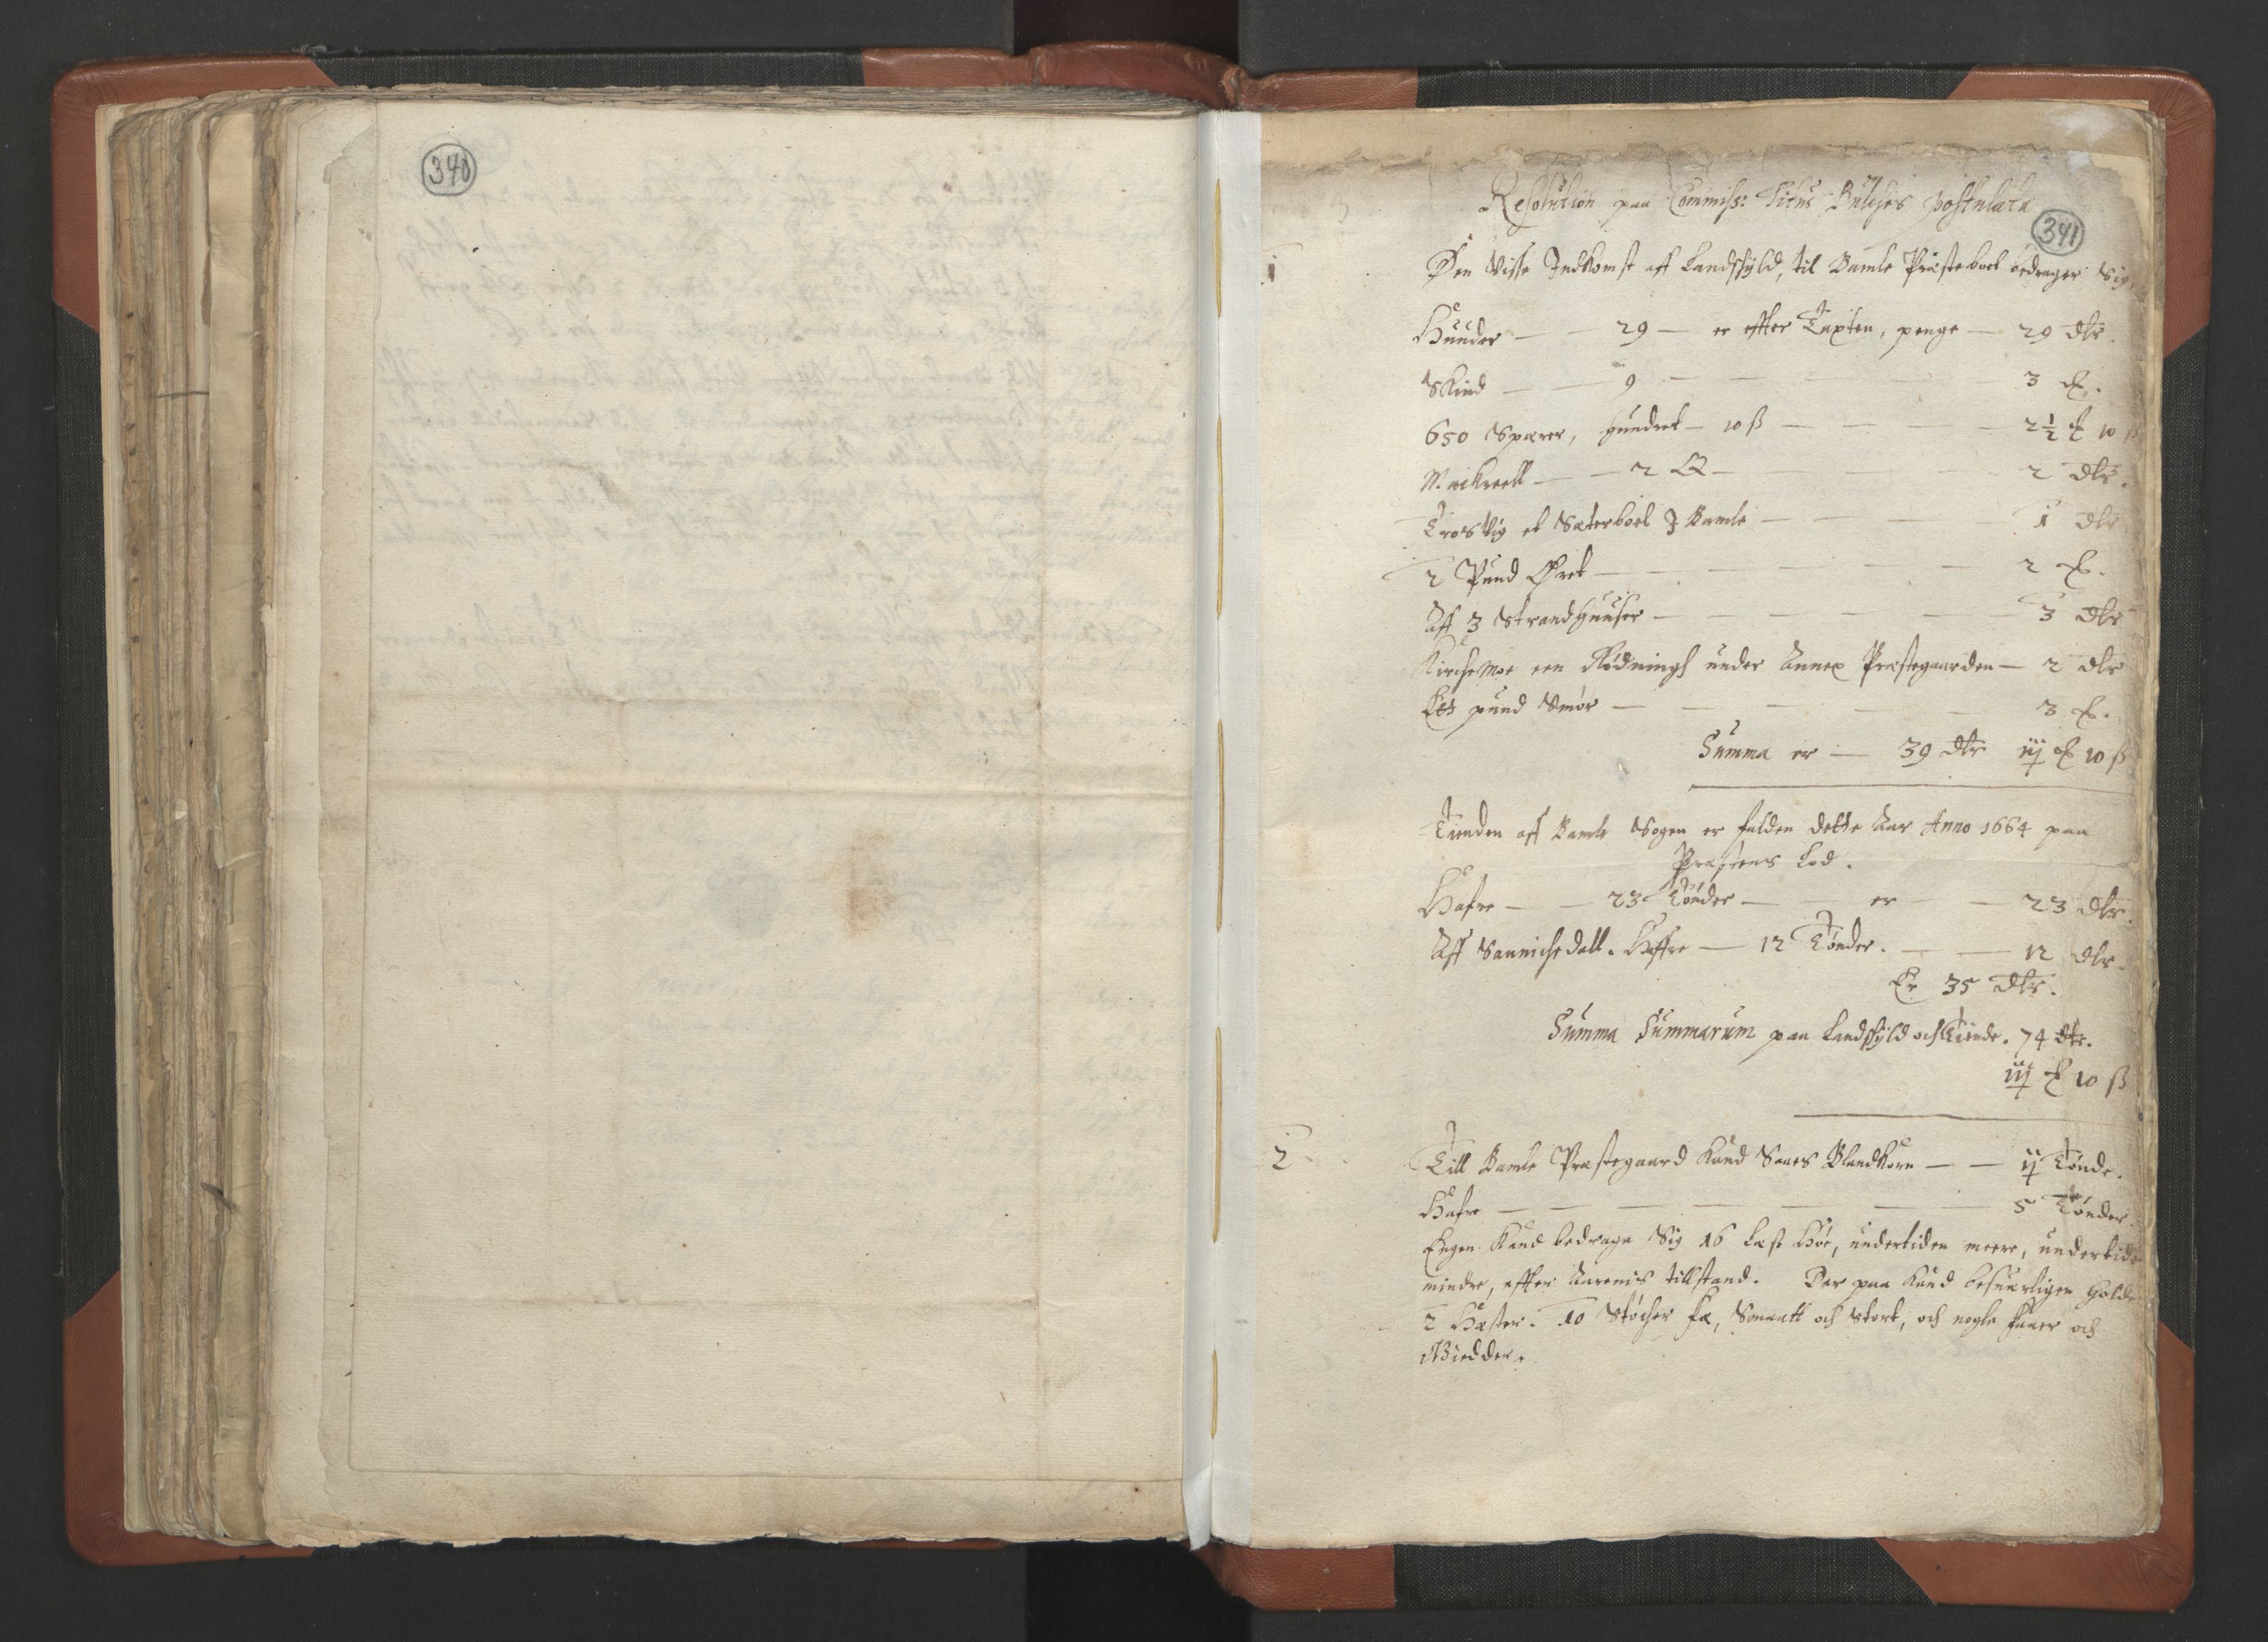 340
341
Resolution paa Commiss: Titus Bulches postulata
1
Den Visse Indkomst aff Landschyld, til Bamle Præsteboel bedrager Sig,
Huuder — — 29 — er effter Taxten, penge — 29 dlr.
Skind — — 9 — — — — 3
650 Sparer, hundret — 10 ß — — — 2½ 10 ß
Mackreell — — 2 — — — 2 dlr.
Trosvig et Sæterboel J Bamle — — — 1 dlr
2 Pund — — — — — 2
Aff 3 Strandhuuser — — — — 3 dlr
Kirchemoe een Rødningh under Annex Præstegaarden — 2 dlr
Ett pund Smør — — — — — 3
Summa er — 39 dlr iij 10 ß
Tienden aff Bamle Sogen er falden dette Aar Anno 1664 paa
Præstens Lod.
Hafre — — 23 Tønder — — er — — 23 dlr.
Aff Sannichedall. Haffre — 12 Tønder. — — 12 dlr.
Er 35 dlr.
Summa Summarum paa Landschyld och Tiende. 74 dlr.
iij 10 ß
2
Till Bamle Præstegaard Kand Saaes Blandkorn — — ij Tønde.
Hafre — — — — — — 5 Tønder.
Engen Kand bedrage Sig 16 Læs Høe, undertiden meere, undertid
mindre, effter Aarens tillstand. Der paa Kand besuerligen holde
2 Hæster. 10 Støcher Fæ, Smaatt och Stort, och nogle Faaer och
Giedder.